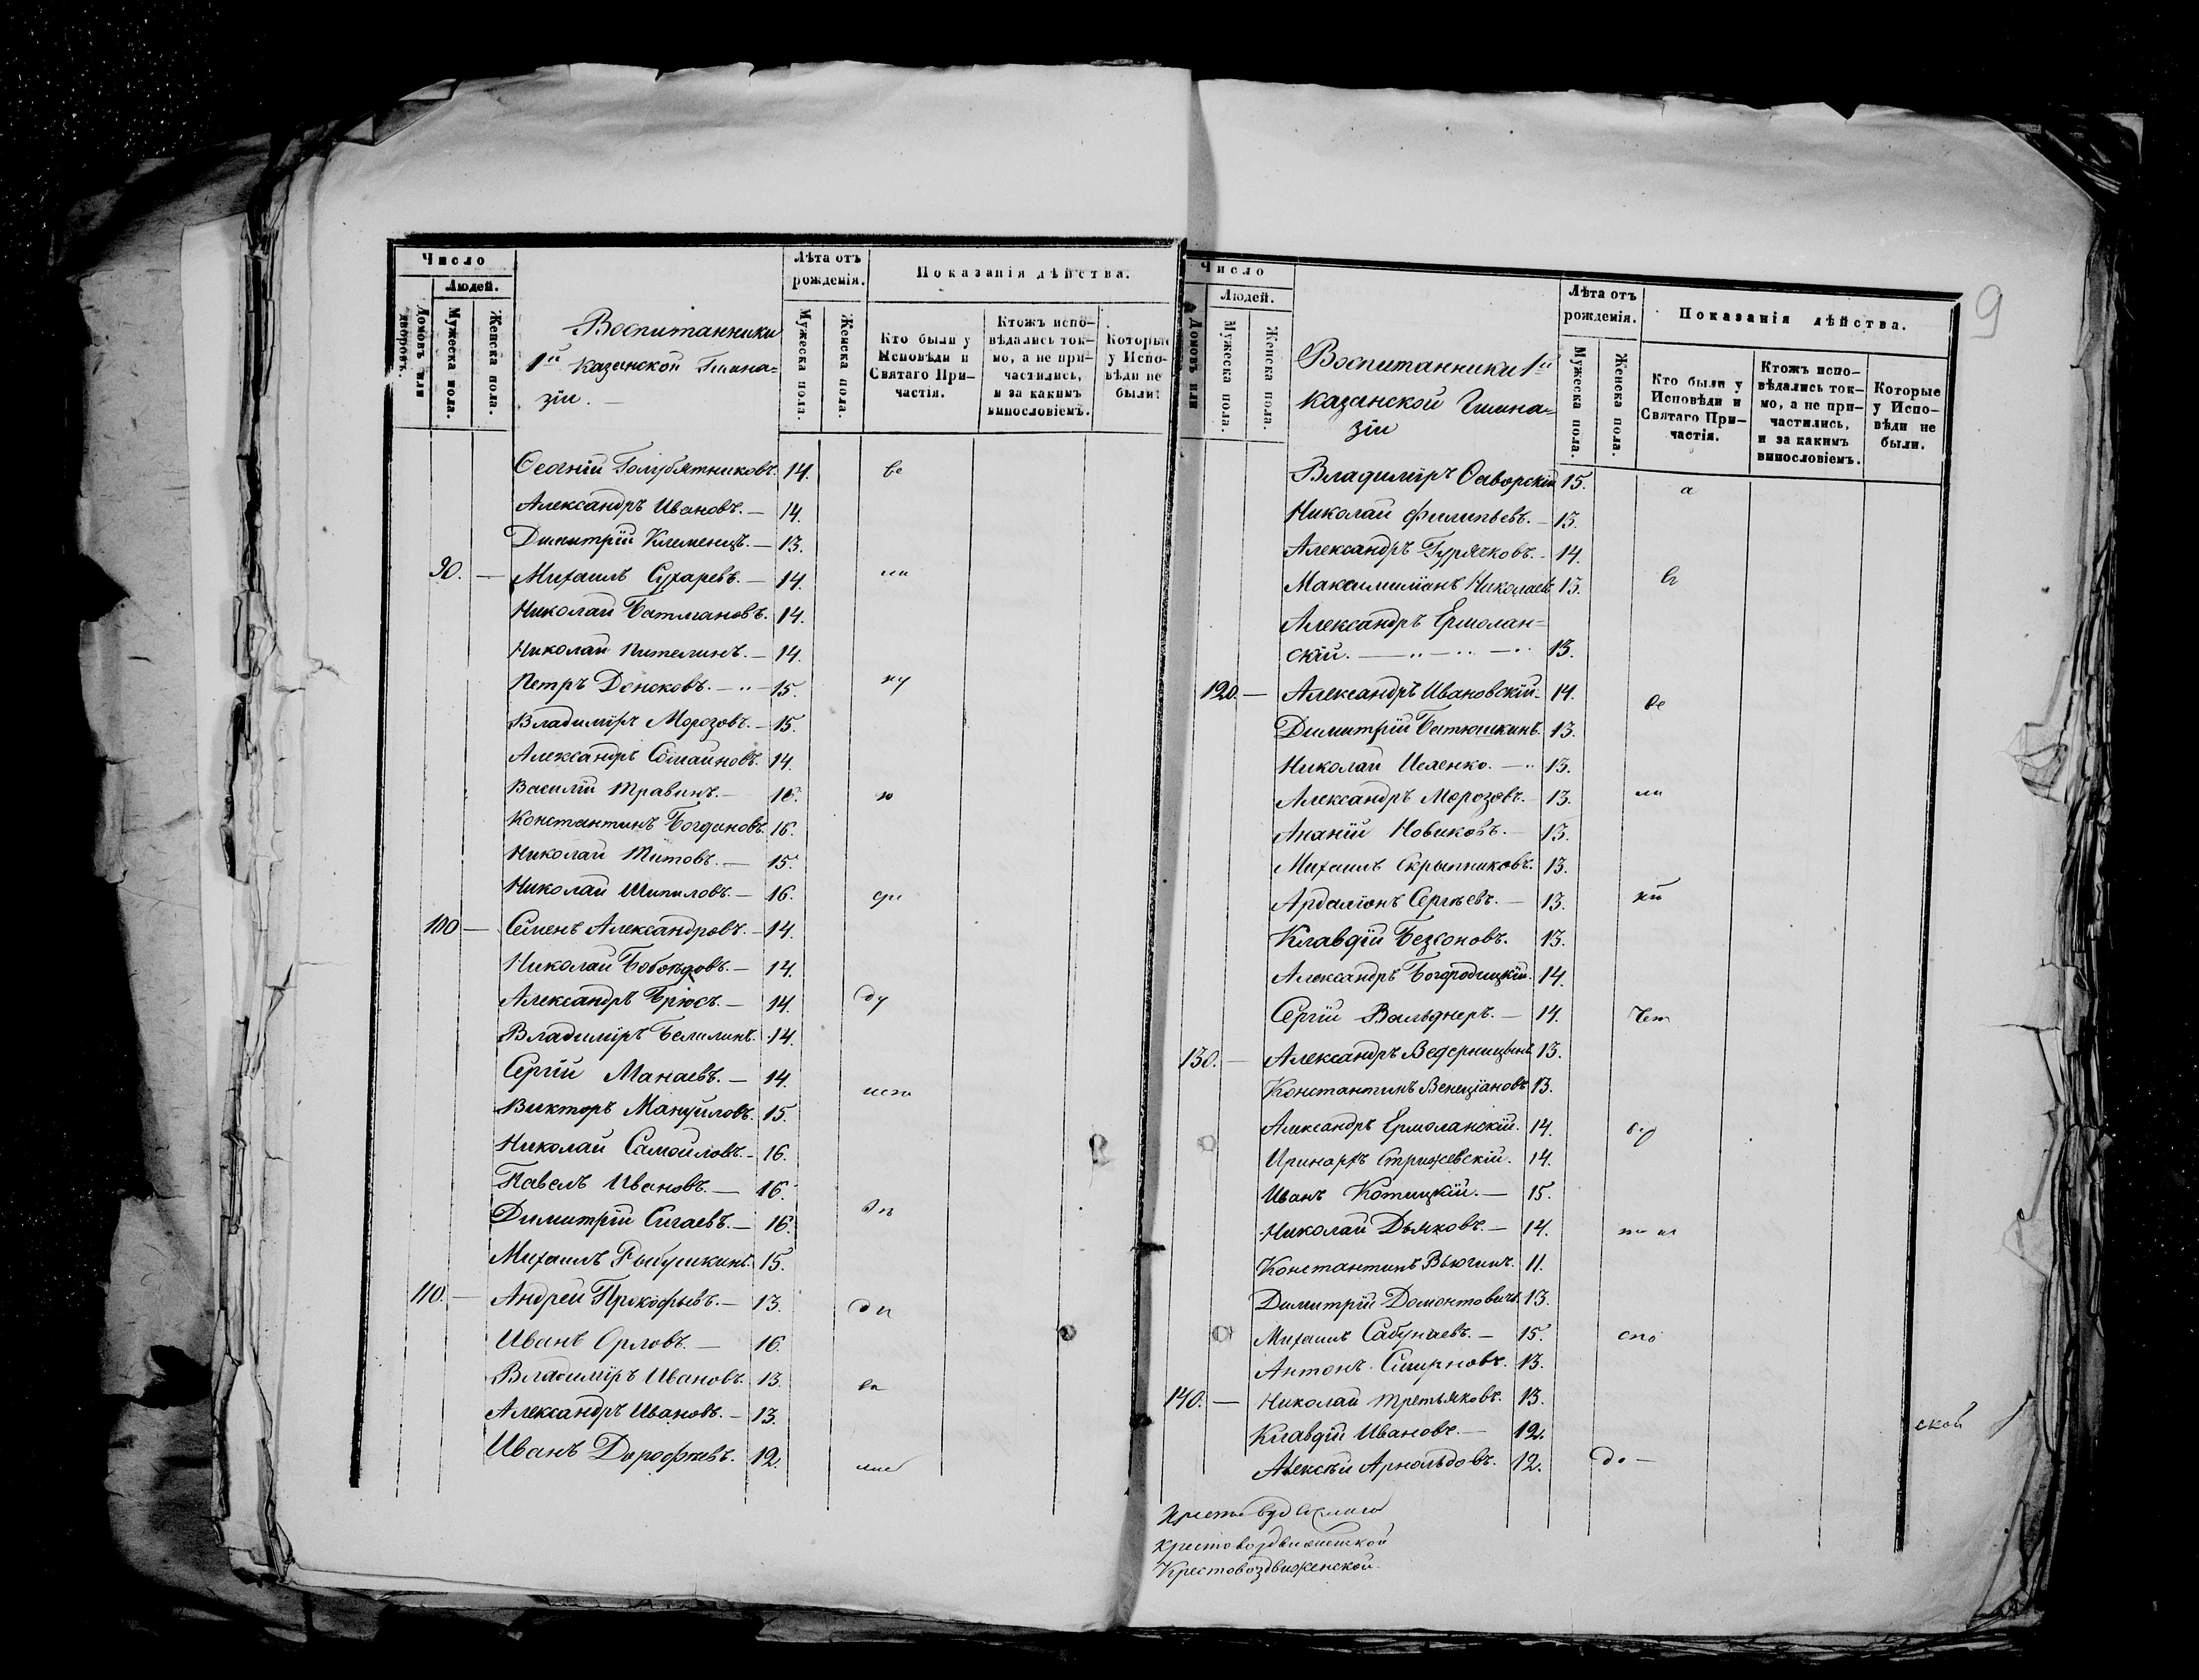 Число
Людей.
Домовъ или дворовъ.
Мужеска пола.
Женска пола.
Воспитанники
1й Казанской Гимна=
зіи. —
Лѣта отъ
рожденія.
Мужеска пола.
Женска пола.
Показанія дѣйства.
Кто были у
Исповѣди и
Святаго При-
частія.
Ктожъ испо-
вѣдались ток-
мо, а не при-
частились,
и за какимъ
винословіемъ.
Которые
у Испо-
вѣди не
были.
Голубятниковъ. 14. ве
Александръ Ивановъ. — 14.
Димитрій Клеменцъ. — 13.
90. — Михаилъ Сухаревъ. — 14. ли
Николай Батмановъ. 14.
Николай Пителинъ. — 14.
Петръ Донсковъ. — 15. ку
Владиміръ Морозовъ. — 15.
Александръ 14.
Василій Травинъ. — 16. ю
Константинъ Богдановъ. 16.
Николай Титовъ. — 15.
Николай Шипиловъ. — 16.
100 — Семенъ Александровъ. — 14.
Николай — 14.
Александръ Брюсъ. — 14. ду
Владиміръ 14.
Сергій Манаевъ. — 14.
Викторъ Мануиловъ. 15.
Николай Самойловъ. — 16.
Павелъ Ивановъ. — 16.
Димитрій Сигаевъ. — 16.
Михаилъ Рыбушкинъ. 15.
110. — Андрей Прокофьевъ. — 13.
Иванъ Орловъ. — 16.
Владиміръ Ивановъ. 13.
Александръ Ивановъ. — 13.
Иванъ Дорофѣевъ. 12.
9
Число
Людей.
Домовъ или
Мужеска пола.
Женска пола.
Воспитанники 1й
Казанской Гимна=
зіи
Лѣта отъ
рожденія.
Мужеска пола.
Женска пола.
Показанія дѣйства.
Кто были у
Исповѣди и
Святаго При-
частія.
Ктожъ испо-
вѣдались ток-
мо, а не при-
частились,
и за какимъ
винословіемъ.
Которые
у Испо-
вѣди не
были.
Владиміръ 15. а
Николай Филипьевъ. — 13.
Александръ Гурячковъ. — 14.
Максимиліанъ Николаевъ 13.
Александръ Ермолан=
скій. — 13.
120. — Александръ Ивановскій. 14.
Димитрій Батюшкинъ. 13.
Николай Исаенко. — 13.
Александръ Морозовъ. — 13. ли
Ананій Новиковъ. — 13.
Михаилъ Скрыпниковъ. 13.
Ардаліонъ Сергѣевъ. — 13. кй
Клавдій Безсоновъ. 13.
Александръ Богородицкій. 14.
Сергій Вальднеръ. — 14. Чет
130. — Александръ 13.
Константинъ Венеціановъ 13.
Александръ Ермоланскій. 14.
Иринархъ Стрижевскій. 14.
Иванъ Котицкій. — 15.
Николай Дьяковъ. — 14.
Константинъ Вьюгинъ. 11.
Димитрій Домонтовичъ. 13.
Михаилъ Сабунаевъ. — 15. спо
Антонъ Смирновъ. 13.
140. — Николай Третьяковъ. 13.
Клавдій Ивановъ. — 12.
Алексѣй Арнольдовъ. 12. до —
Крестовоздвиженской
Крестовоздвиженской